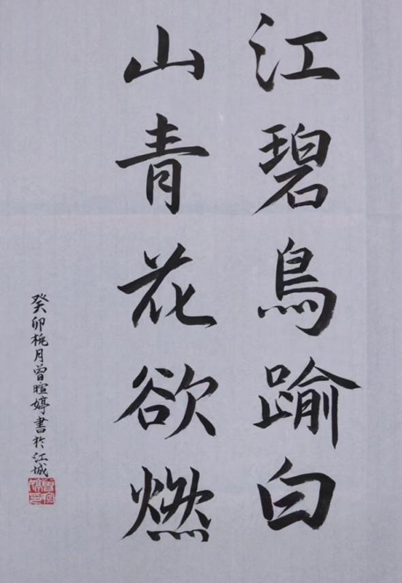 江碧鳥踰白
山青花欲燃
癸卯桃月曾暄婷書於江城